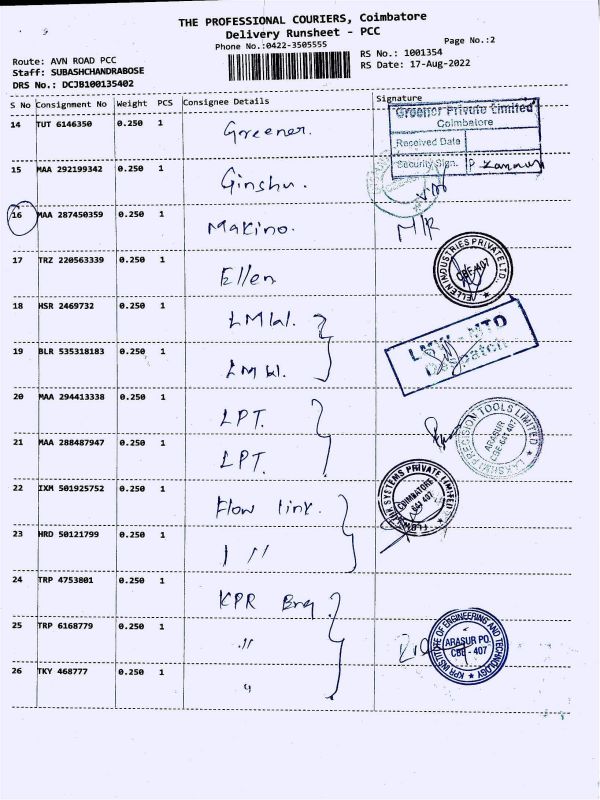 THE PROFESSIONAL COURIERS, Coimbatore
Delivery Runsheet - PCC
Phone No.:0422-3505555
Page No.:2
Route: AVN ROAD PCC
RS No.: 1001354
Staff: SUBASHCHANDRABOSE
RS Date: 17-Aug-2022
DRS No.: DCJB100135402
S No Consignment No Weight PCS Consignee Details Signature
14 TUT 6146350 0.250 1 Greener.
Greener Private Limited
Coimbatore
Received Date
Security Sign.
15 MAA 292199342 0.250 1 Ginshu.
16 MAA 287450359 0.250 1 Makino. M/R
17 TRZ 220563339 0.250 1 Ellen
ELLEN INDUSTRIES PRIVATE LTD.
CBE-407
18 HSR 2469732 0.250 1
LMW - MTD
Despatch
19 BLR 535318183 0.250 1
20 MAA 294413338 0.250 1 LPT.
LAKSHMI PRECISION TOOLS LIMITED
ARASUR
CBE-641 407
21 MAA 288487947 0.250 1 LPT.
22 IXM 501925752 0.250 1 Flow link.
SYSTEMS PRIVATE LIMITED
COIMBATORE
641 407
23 HRD 50121799 0.250 1 1 //
24 TRP 4753801 0.250 1 KPR Eng
25 TRP 6168779 0.250 1 "
KPR INSTITUTE OF ENGINEERING AND TECHNOLOGY
ARASUR PO.
CBE - 407
26 TKY 468777 0.250 1 "